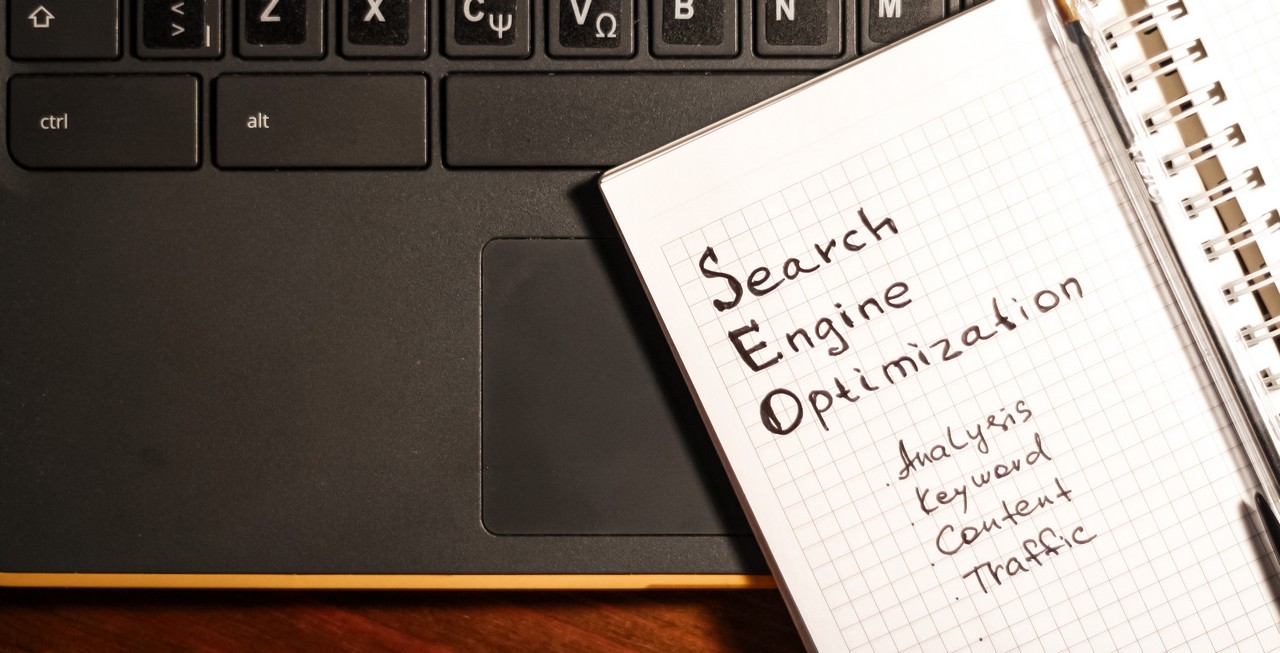 < Z X C V B N M
> Ψ Ω
ctrl alt
Search
Engine
Optimization
. Analysis
. Keyword
. Content
. Traffic
.